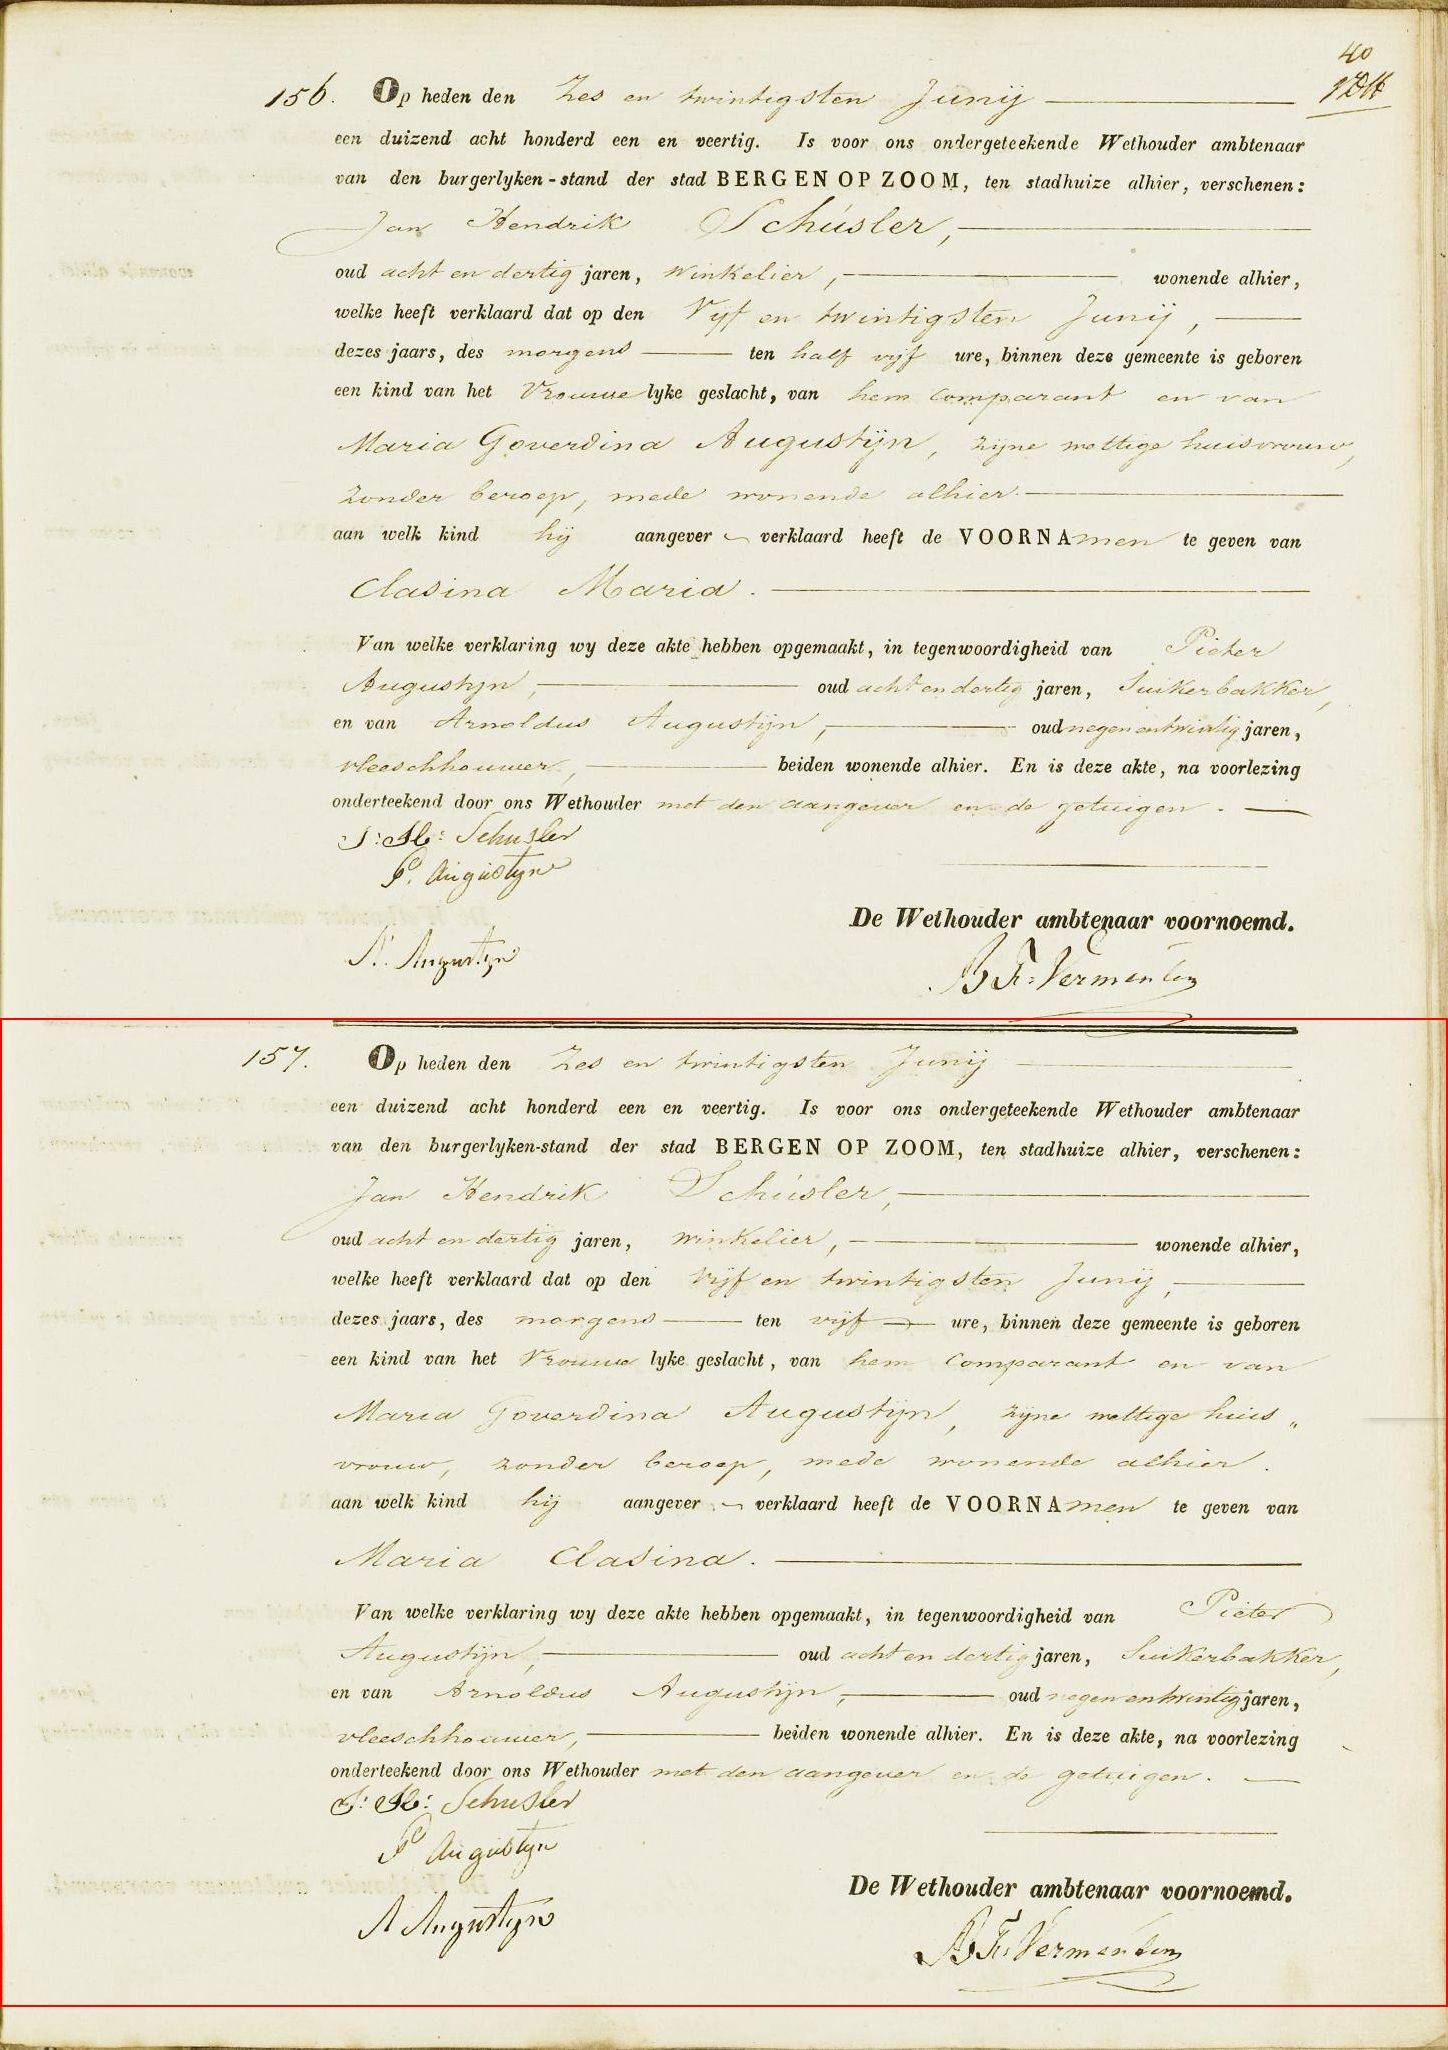 40
156. Op heden den Zes en twintigsten Junij
een duizend acht honderd een en veertig. Is voor ons ondergeteekende Wethouder ambtenaar
van den burgerlyken-stand der stad BERGEN OP ZOOM, ten stadhuize alhier, verschenen:
Jan Hendrik Schúsler,
oud acht en dertig jaren, winkelier, wonende alhier,
welke heeft verklaard dat op den Vijf en twintigsten Junij,
dezes jaars, des morgens ten half vijf ure, binnen deze gemeente is geboren
een kind van het Vrouwelyke geslacht, van hem comparant en van
Maria Goverdina Augustijn, zijne wettige huisvrouw,
zonder beroep, mede wonende alhier.
aan welk kind hij aangever verklaard heeft de VOORNAmen te geven van
Clasina Maria.
Van welke verklaring wy deze akte hebben opgemaakt, in tegenwoordigheid van Pieter
Augustijn, oud acht en dertig jaren, Suikerbakker,
en van Arnoldus Augustijn, oud negen en twintig jaren,
vleeschhouwer, beiden wonende alhier. En is deze akte, na voorlezing
onderteekend door ons Wethouder met den aangever en de getuigen.
J: H: Schusler
P. Augustyn
De Wethouder ambtenaar voornoemd.
A. Augustyn
B Fr: Vermeulen
157. Op heden den Zes en twintigsten Junij
een duizend acht honderd een en veertig. Is voor ons ondergeteekende Wethouder ambtenaar
van den burgerlyken-stand der stad BERGEN OP ZOOM, ten stadhuize alhier, verschenen:
Jan Hendrik Schúsler,
oud acht en dertig jaren, winkelier, wonende alhier,
welke heeft verklaard dat op den Vijf en twintigsten Junij,
dezes jaars, des morgens ten vijf ure, binnen deze gemeente is geboren
een kind van het Vrouwelyke geslacht, van hem comparant en van
Maria Goverdina Augustijn, zijne wettige huis„
vrouw, zonder beroep, mede wonende alhier.
aan welk kind hij aangever verklaard heeft de VOORNAmen te geven van
Maria Clasina.
Van welke verklaring wy deze akte hebben opgemaakt, in tegenwoordigheid van Pieter
Augustijn, oud acht en dertig jaren, Suikerbakker,
en van Arnoldus Augustijn, oud negen en twintig jaren,
vleeschhouwer, beiden wonende alhier. En is deze akte, na voorlezing
onderteekend door ons Wethouder met den aangever en de getuigen.
J: H: Schusler
P Augustyn
De Wethouder ambtenaar voornoemd.
A Augustyn
B Fr: Vermeulen